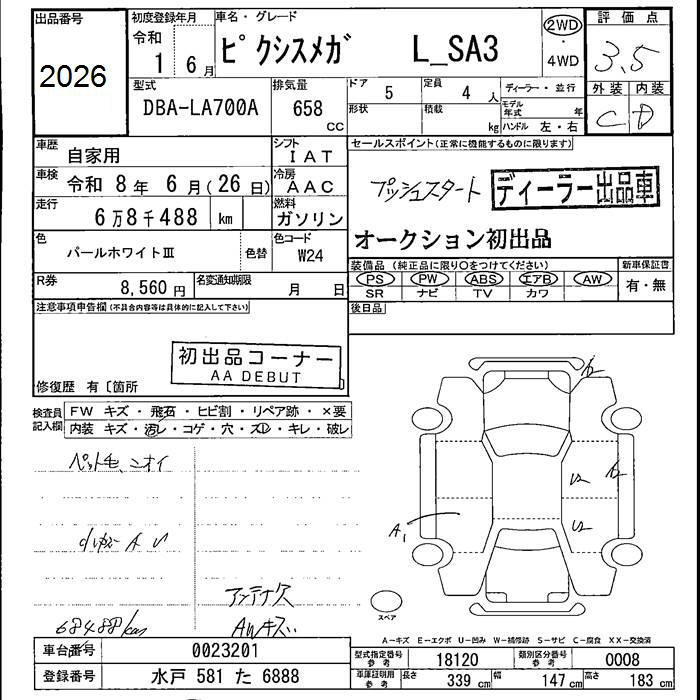 出品番号
2026
初度登録年月
令和
1 6月
車名・グレード
ピクシスメガ L_SA3
2WD
・
4WD
評価点
3.5
外装 内装
C D
型式
DBA-LA700A
排気量
658
cc
ドア
5
定員
4 人
ディーラー・並行
形状
積載
kg
モデル年式 年
ハンドル 左・右
車歴
自家用
シフト
IAT
車検
令和 8年 6月(26日)
冷房
AAC
走行
6万8千488 km
燃料
ガソリン
色
パールホワイトⅢ
色替
色コード
W24
R券
8,560円
名変通知期限
月 日
セールスポイント(正常に機能するものに限ります)
プッシュスタート
ディーラー出品車
オークション初出品
装備品(純正品に限り〇をつけてください)
PS PW ABS エアB AW
SR ナビ TV カワ
新車保証書
有・無
後日品
注意事項申告欄(不具合内容等は具体的に記入して下さい)
初出品コーナー
AA DEBUT
修復歴 有〔箇所
検査員
記入欄
FW キズ・飛石・ヒビ割・リペア跡・×要
内装 キズ・汚レ・コゲ・穴・スレ・キレ・破レ
ペット毛、ニオイ
アンテナ欠
68488km
AWキズ
A1
U2
U2
スペア
A-キズ E-エクボ U-凹み W-補修跡 S-サビ C-腐食 XX-交換済
車台番号
0023201
登録番号
水戸 581 た 6888
型式指定番号
参考
18120
類別区分番号
参考
0008
車庫証明用
参考
長さ
339 cm
幅
147 cm
高さ
183 cm